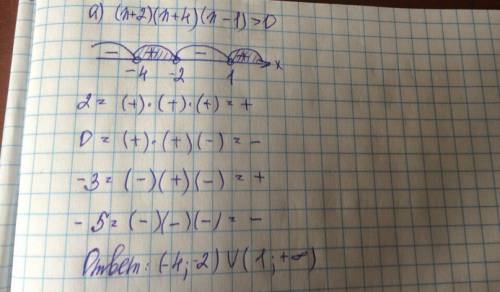 а) (x+2)(x+4)(x-1)>0
- + - +
-4 -2 1 x
2 = (+)·(+)·(+) = +
0 = (+)·(+)(-) = -
-3 = (-)(+)(-) = +
-5 = (-)(-)(-) = -
Ответ: (-4;-2) V (1;+∞)